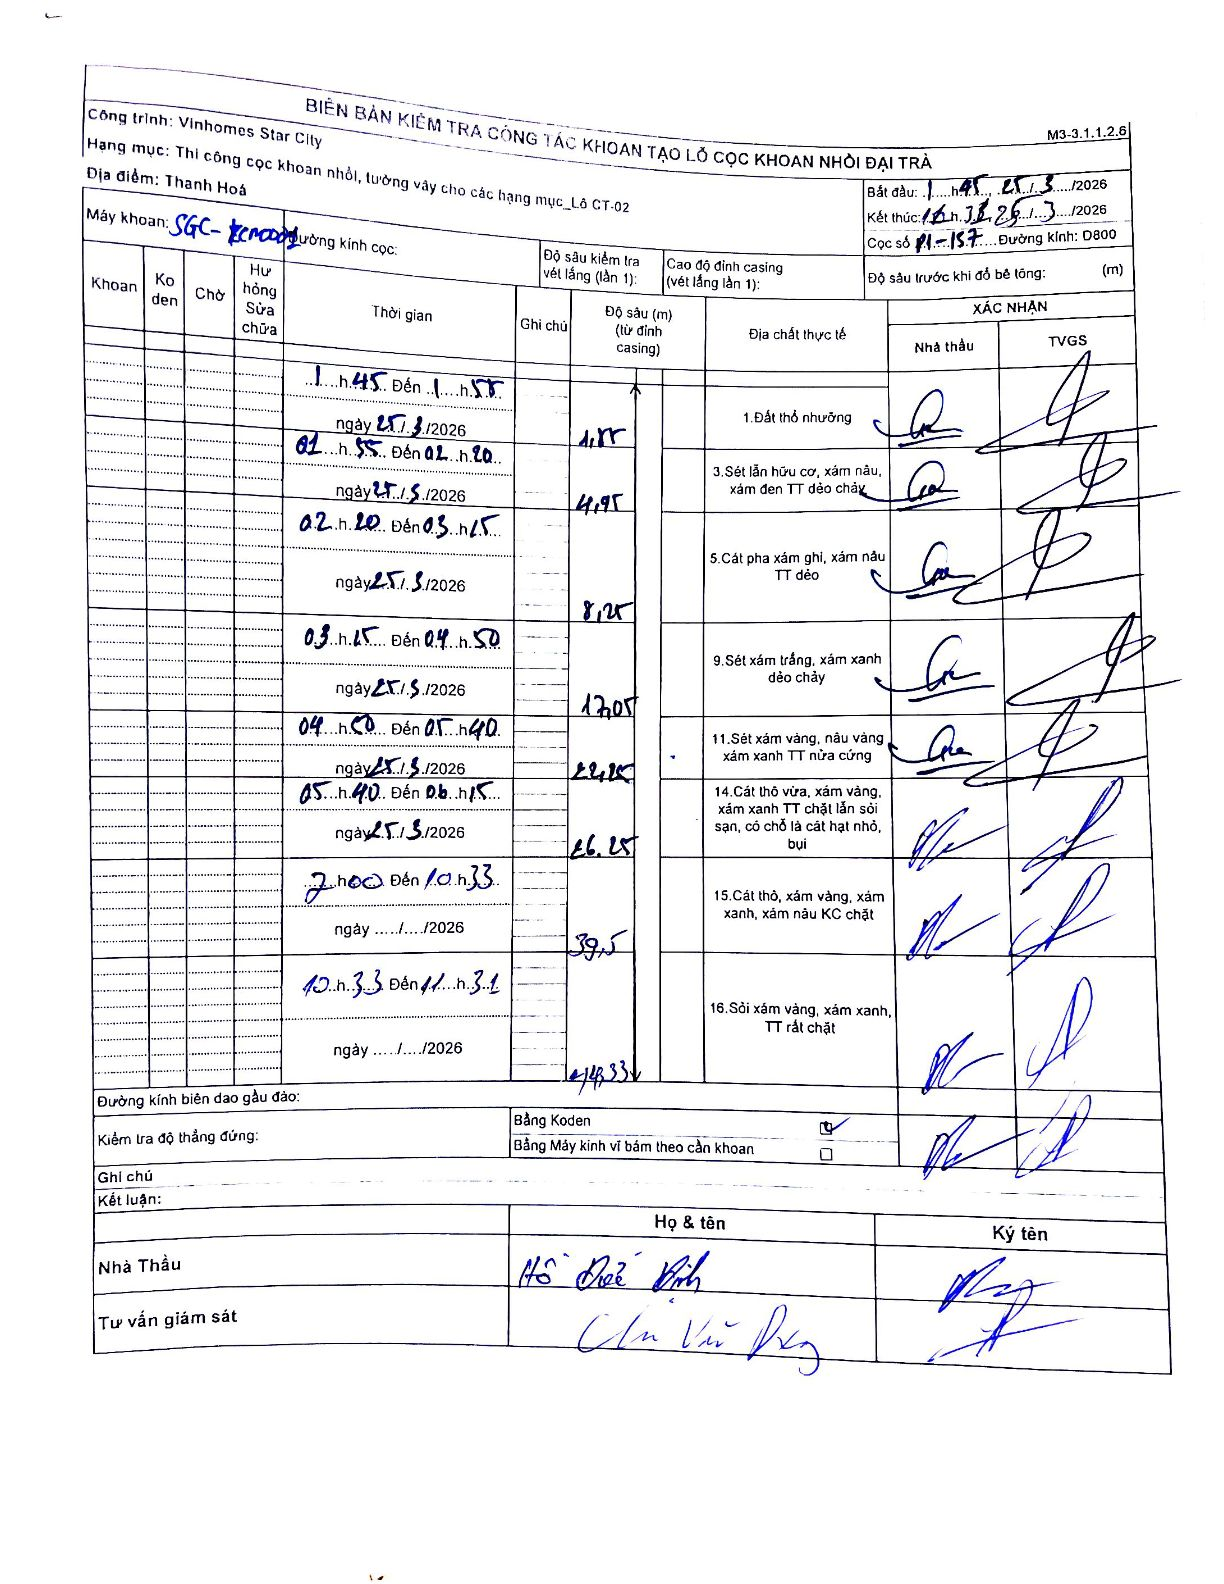 BIÊN BẢN KIỂM TRA CÔNG TÁC KHOAN TẠO LỖ CỌC KHOAN NHỒI ĐẠI TRÀ
M3-3.1.1.2.6
Công trình: Vinhomes Star City
Hạng mục: Thi công cọc khoan nhồi, tường vây cho các hạng mục_Lô CT-02
Địa điểm: Thanh Hoá
Bắt đầu: 1 h 45, 25/3/2026
Kết thúc: h 26/3/2026
Cọc số P1-157 Đường kính: D800
Máy khoan: SGC- Đường kính cọc:
Độ sâu kiểm tra vét lắng (lần 1):
Cao độ đỉnh casing (vét lắng lần 1):
Độ sâu trước khi đổ bê tông: (m)
Khoan
Ko den
Chờ
Hư hỏng Sửa chữa
Thời gian
Ghi chú
Độ sâu (m) (từ đỉnh casing)
Địa chất thực tế
XÁC NHẬN
Nhà thầu
TVGS
1 h 45 Đến 1 h 55
ngày 25/3/2026
1,55
1.Đất thổ nhưỡng
01 h 55 Đến 02 h 20
ngày 25/3/2026
4,95
3.Sét lẫn hữu cơ, xám nâu, xám đen TT dẻo chảy
02 h 20 Đến 03 h 15
ngày 25/3/2026
8,25
5.Cát pha xám ghi, xám nâu TT dẻo
03 h 15 Đến 04 h 50
ngày 25/3/2026
17,05
9.Sét xám trắng, xám xanh dẻo chảy
04 h 50 Đến 05 h 40
ngày 25/3/2026
22,25
11.Sét xám vàng, nâu vàng xám xanh TT nửa cứng
05 h 40 Đến 06 h 15
ngày 25/3/2026
26.25
14.Cát thô vừa, xám vàng, xám xanh TT chặt lẫn sỏi sạn, có chỗ là cát hạt nhỏ, bụi
7 h 00 Đến 10 h 33
ngày ...../..../2026
39,5
15.Cát thô, xám vàng, xám xanh, xám nâu KC chặt
10 h 33 Đến 11 h 31
ngày ...../..../2026
16.Sỏi xám vàng, xám xanh, TT rất chặt
Đường kính biên dao gầu đào:
Kiểm tra độ thẳng đứng:
Bằng Koden
Bằng Máy kinh vĩ bám theo cần khoan
Ghi chú
Kết luận:
Họ & tên
Ký tên
Nhà Thầu
Tư vấn giám sát